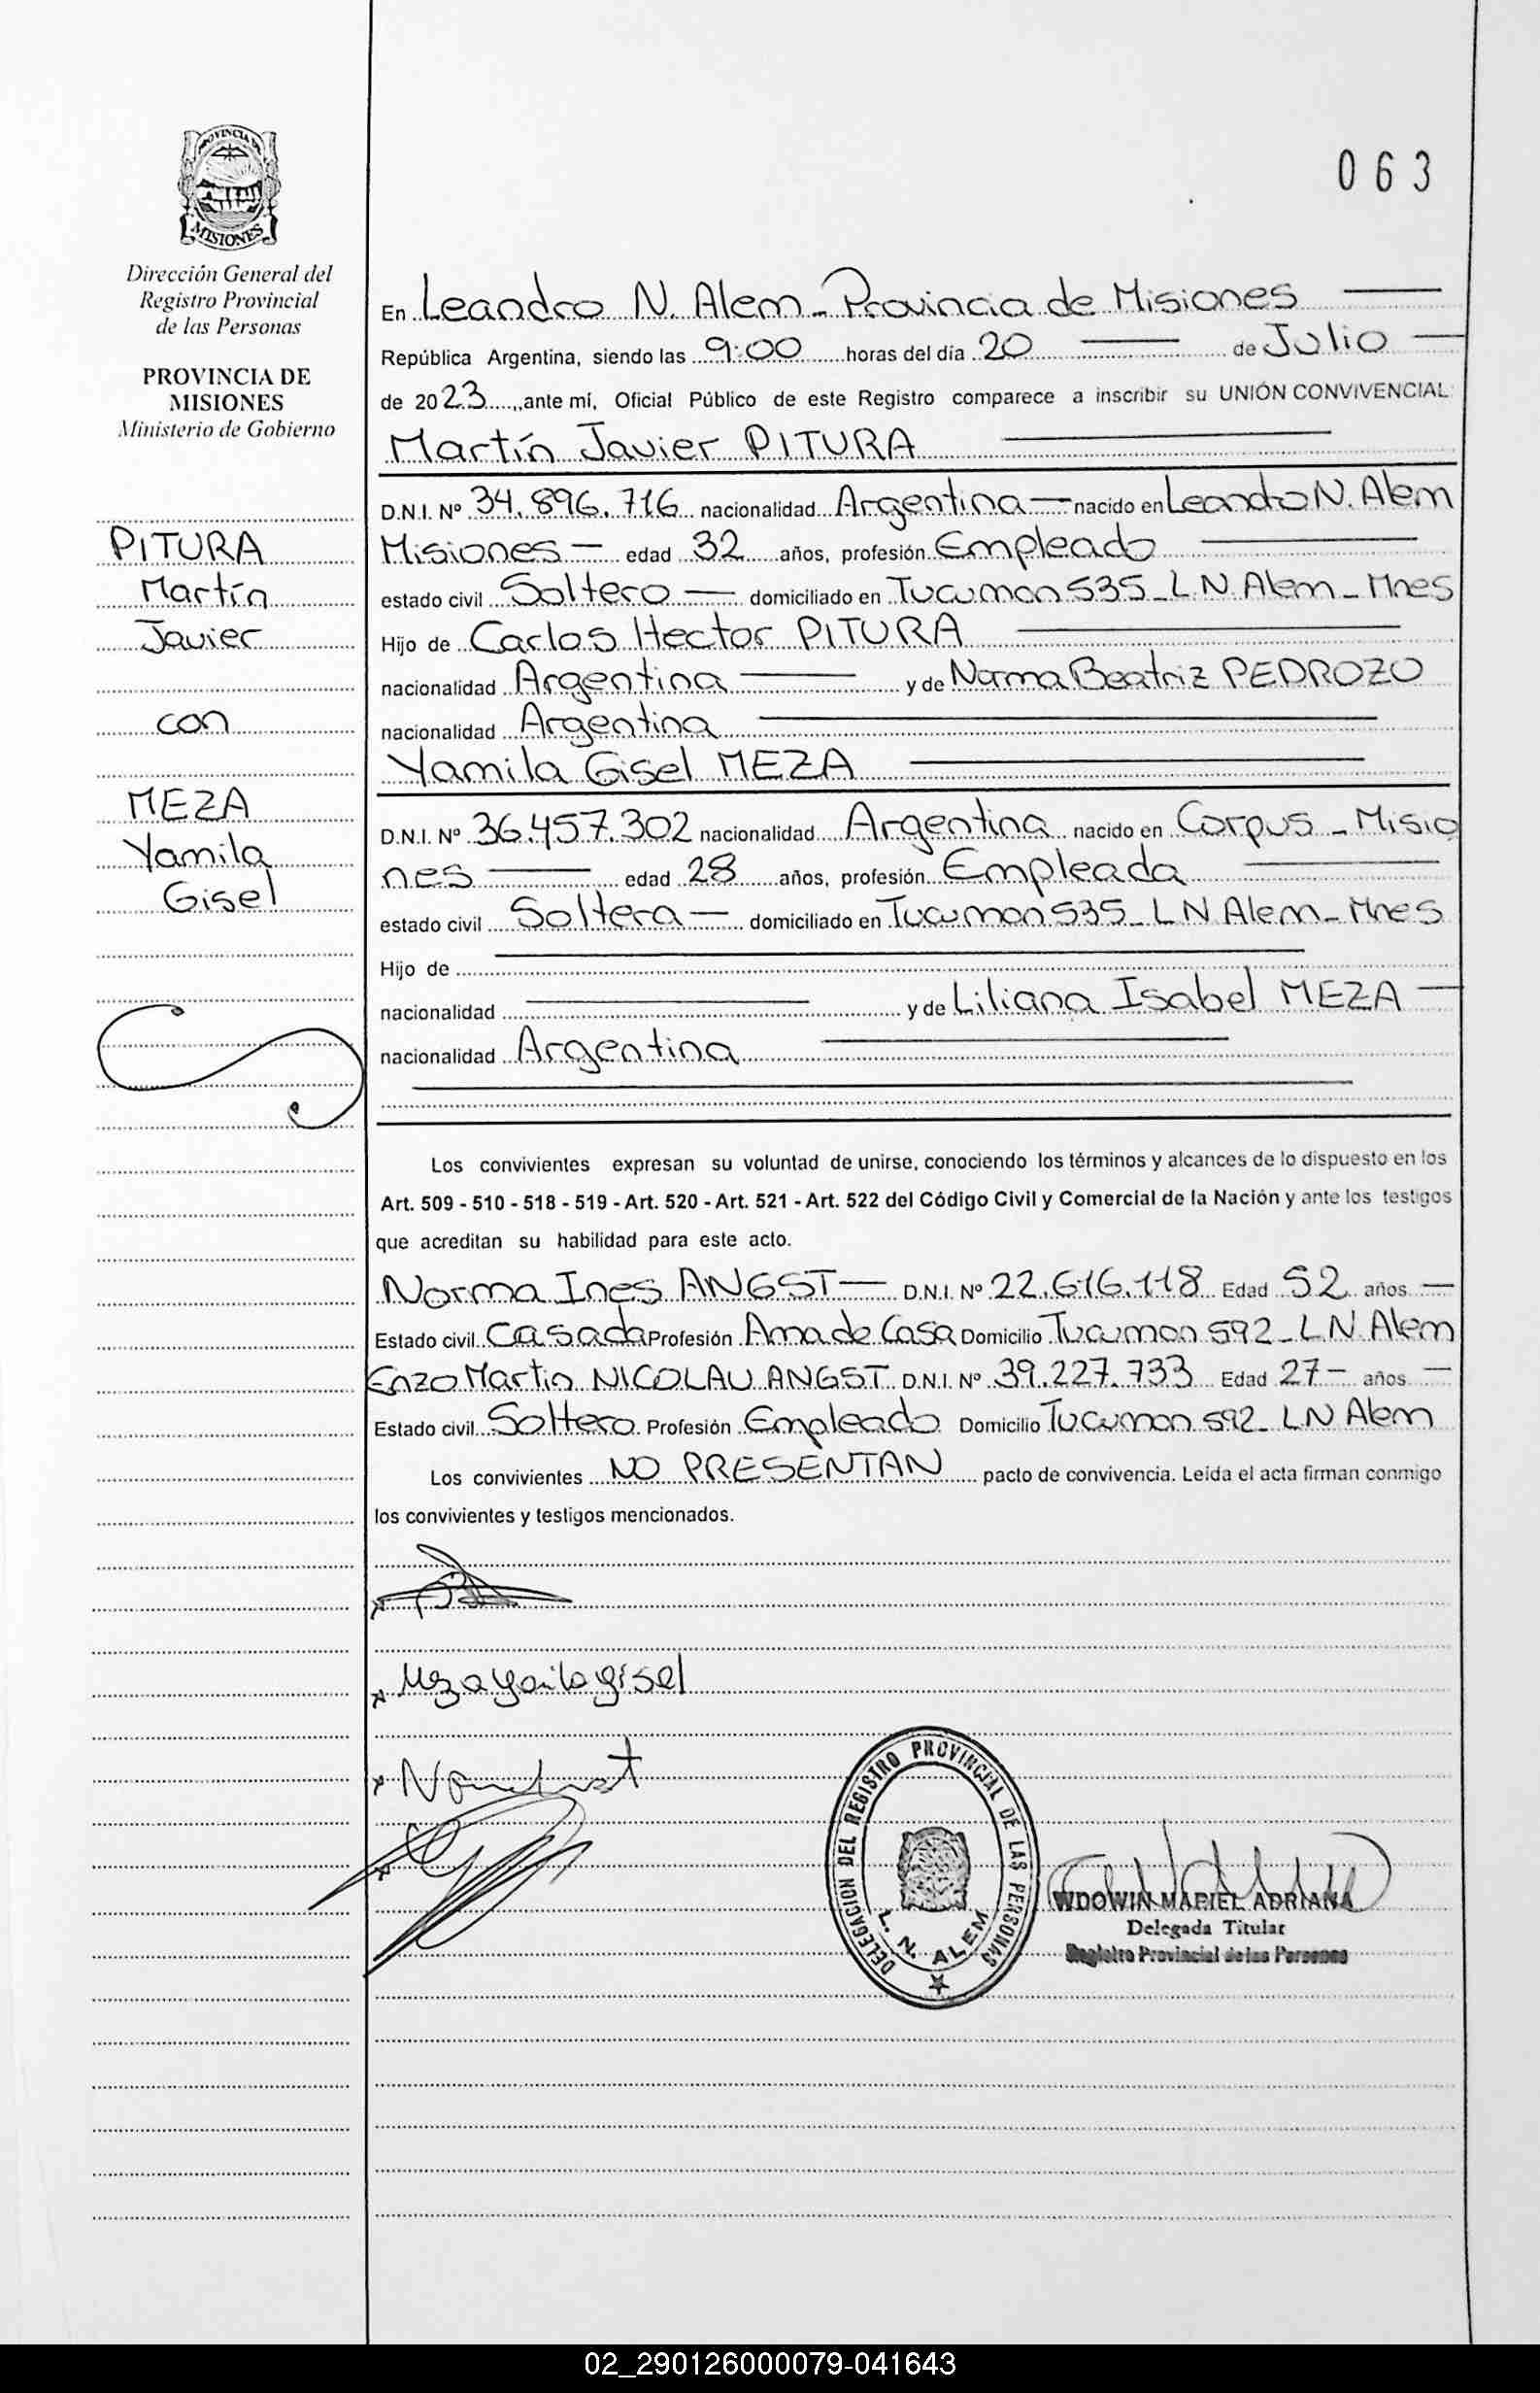 063
PROVINCIA DE
MISIONES
Dirección General del
Registro Provincial
de las Personas
PROVINCIA DE
MISIONES
Ministerio de Gobierno
PITURA
Martín
Javier
con
MEZA
Yamila
Gisel
En Leandro N. Alem - Provincia de Misiones
República Argentina, siendo las 9:00 horas del día 20 de Julio
de 2023, ante mí, Oficial Público de este Registro comparece a inscribir su UNIÓN CONVIVENCIAL:
Martín Javier PITURA
D.N.I. Nº 34.896.716 nacionalidad Argentina nacido en Leandro N. Alem
Misiones edad 32 años, profesión Empleado
estado civil Soltero domiciliado en Tucuman 535 - L.N. Alem - Mnes
Hijo de Carlos Hector PITURA
nacionalidad Argentina y de Norma Beatriz PEDROZO
nacionalidad Argentina
Yamila Gisel MEZA
D.N.I. Nº 36.457.302 nacionalidad Argentina nacido en Corpus - Misio
nes edad 28 años, profesión Empleada
estado civil Soltera domiciliado en Tucuman 535 - L N Alem - Mnes
Hijo de
nacionalidad y de Liliana Isabel MEZA
nacionalidad Argentina
Los convivientes expresan su voluntad de unirse, conociendo los términos y alcances de lo dispuesto en los
Art. 509 - 510 - 518 - 519 - Art. 520 - Art. 521 - Art. 522 del Código Civil y Comercial de la Nación y ante los testigos
que acreditan su habilidad para este acto.
Norma Ines ANGST D.N.I. Nº 22.616.118 Edad 52 años
Estado civil Casada Profesión Ama de Casa Domicilio Tucuman 592 - L N. Alem
Enzo Martin NICOLAU ANGST D.N.I. Nº 39.227.733 Edad 27 años
Estado civil Soltero Profesión Empleado Domicilio Tucuman 592 - L N Alem
Los convivientes NO PRESENTAN pacto de convivencia. Leída el acta firman conmigo
los convivientes y testigos mencionados.
DELEGACION DEL REGISTRO PROVINCIAL DE LAS PERSONAS
L. N. ALEM
WDOWIN MARIEL ADRIANA
Delegada Titular
Registro Provincial de las Personas
02_290126000079-041643